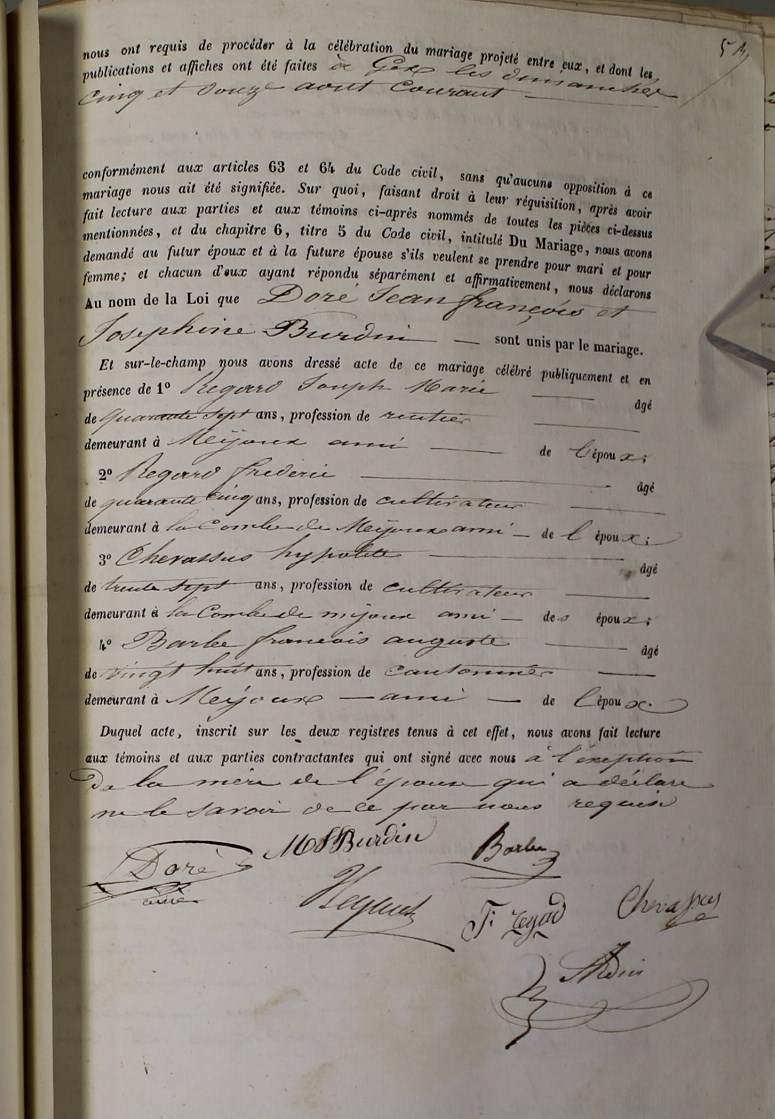 nous ont requis de procéder à la célébration du mariage projeté entre eux, et dont les
publications et affiches ont été faites à Gex les dimanches
cinq et douze août courant
conformément aux articles 63 et 64 du Code civil, sans qu'aucune opposition à ce
mariage nous ait été signifiée. Sur quoi, faisant droit à leur réquisition, après avoir
fait lecture aux parties et aux témoins ci-après nommés de toutes les pièces ci-dessus
mentionnées, et du chapitre 6, titre 5 du Code civil, intitulé Du Mariage, nous avons
demandé au futur époux et à la future épouse s'ils veulent se prendre pour mari et pour
femme; et chacun d'eux ayant répondu séparément et affirmativement, nous déclarons
Au nom de la Loi que Doré Jean françois et
Josephine Burdin — sont unis par le mariage.
Et sur-le-champ nous avons dressé acte de ce mariage célébré publiquement et en
présence de 1º Regard Joseph Marie — âgé
de quarante sept ans, profession de rentier —
demeurant à Mijoux ami — de l'époux;
2º Regard frédéric — âgé
de quarante cinq ans, profession de cultivateur —
demeurant à la Combe de Mijoux ami — de l'époux;
3º Chevassus hypolite — âgé
de trente sept ans, profession de cultivateur —
demeurant à la Combe de mijoux ami — des époux;
4º Barbe françois auguste — âgé
de vingt huit ans, profession de cantonnier —
demeurant à Mijoux — ami — de l'époux.
Duquel acte, inscrit sur les deux registres tenus à cet effet, nous avons fait lecture
aux témoins et aux parties contractantes qui ont signé avec nous à l'exception
De la mère de l'épouse qui a déclaré
ne le savoir de ce par nous requise
Doré M J Burdin Barbe
F. regad Chevassus